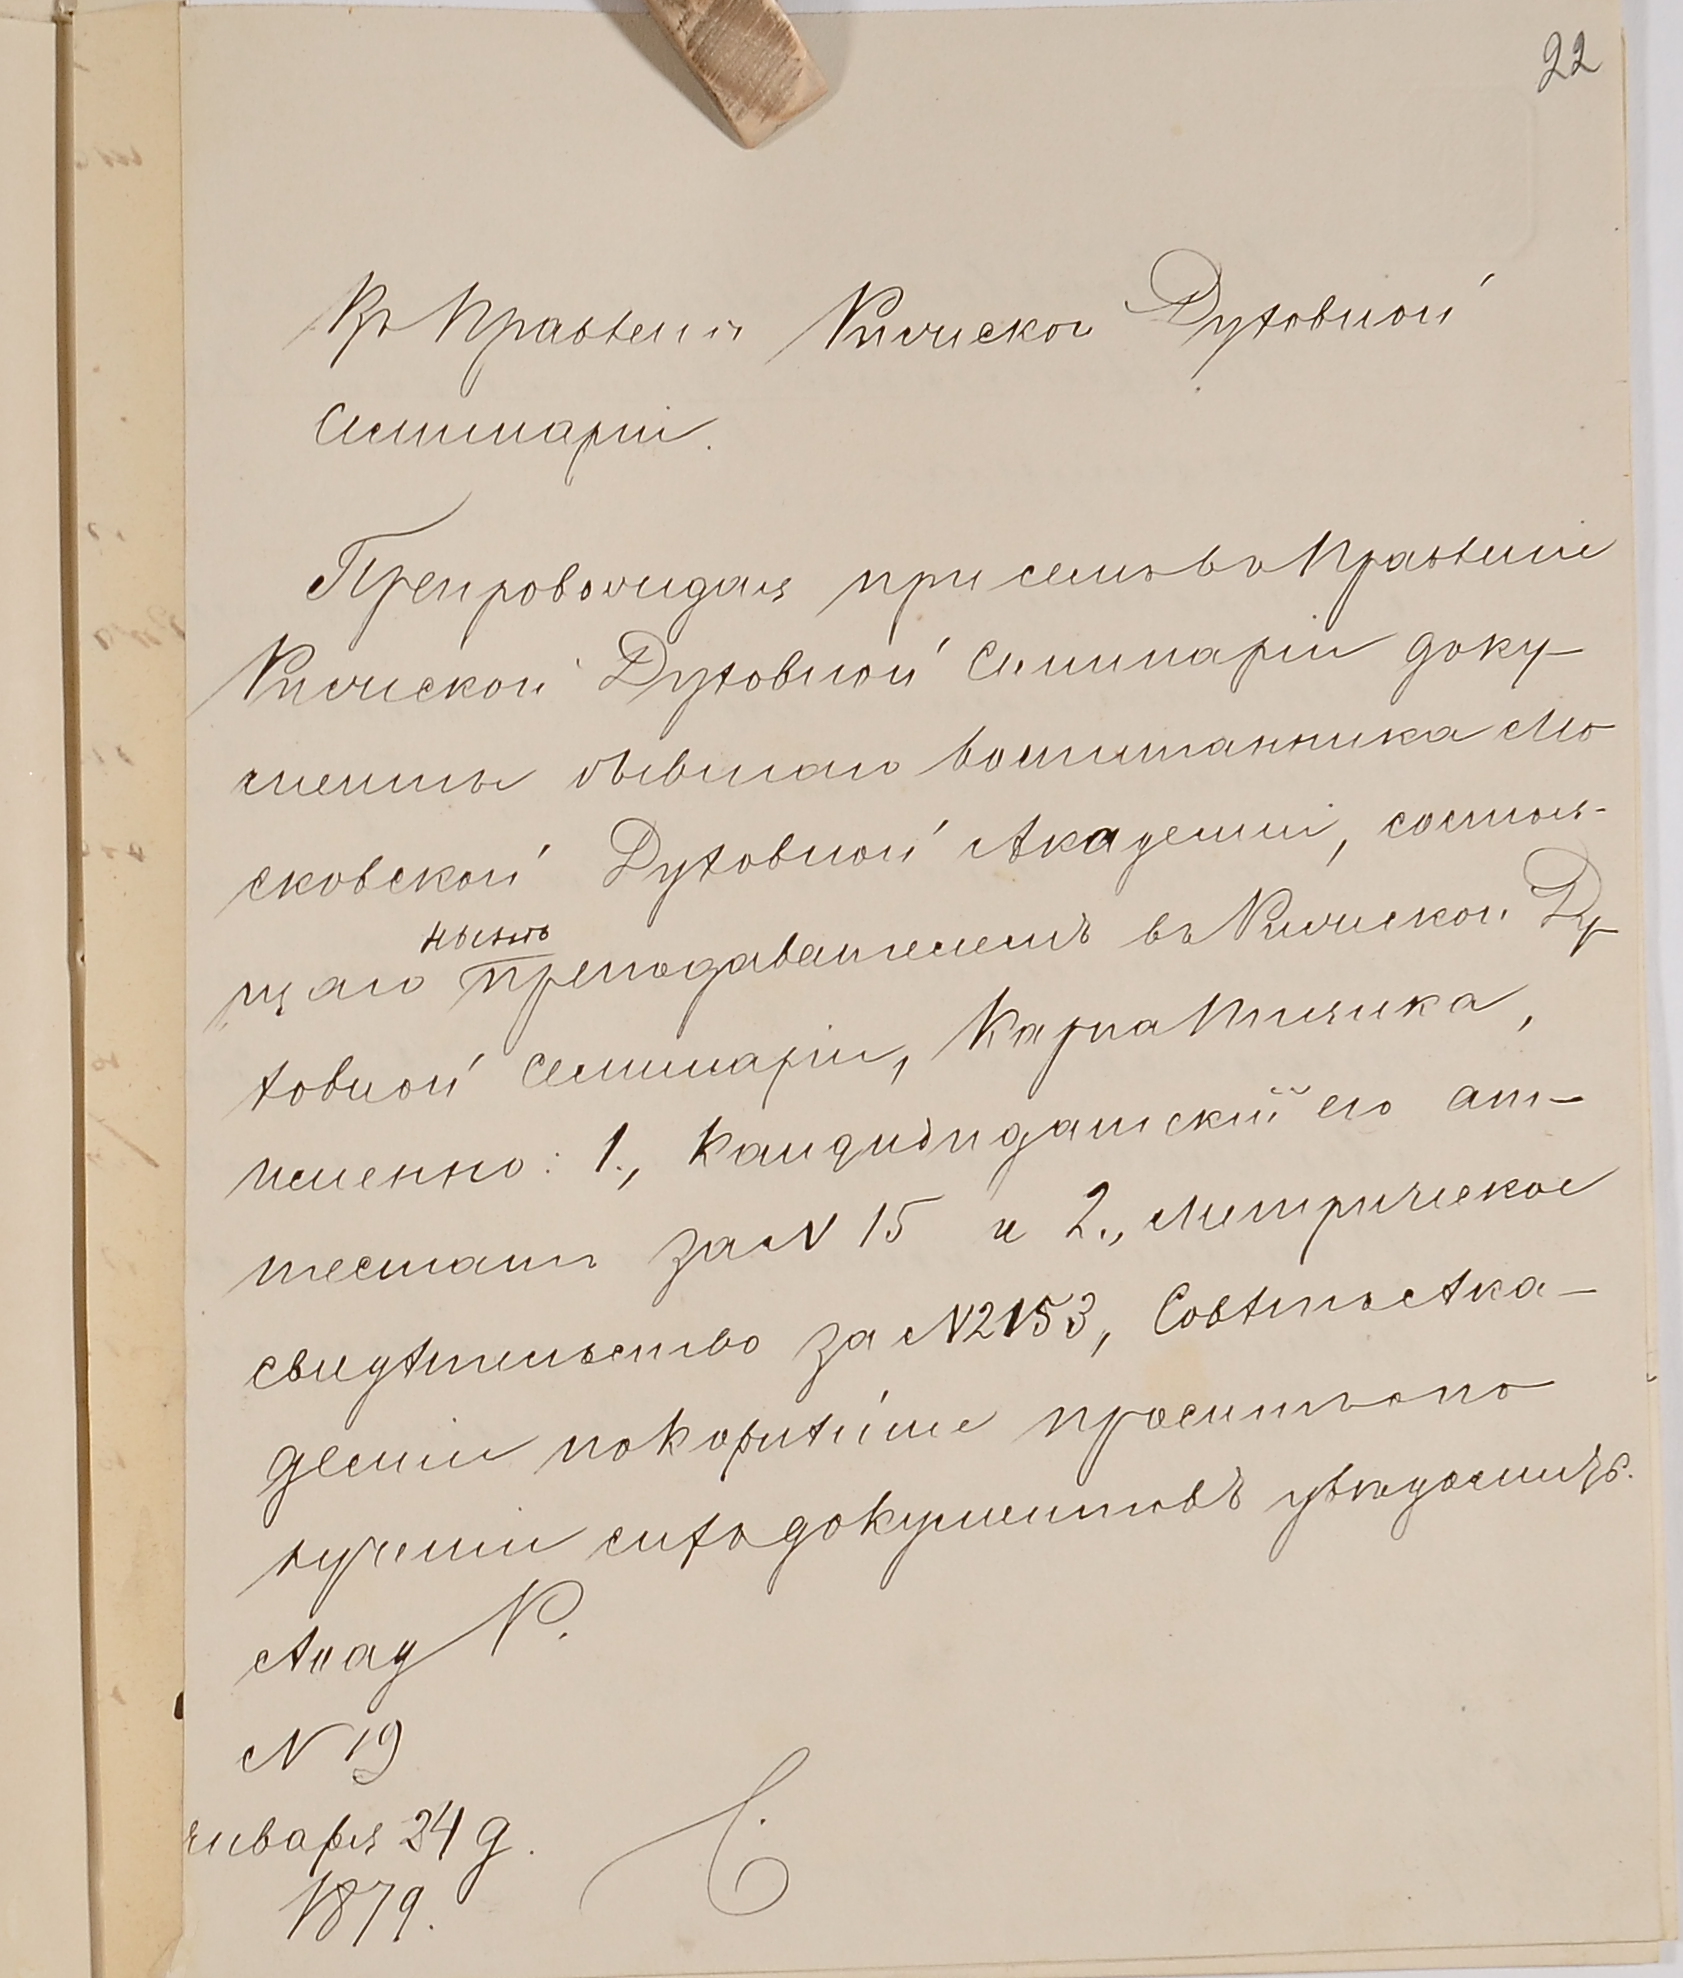 22
Въ Правленіе Рижской Духовной
Семинаріи.
Препровождая при семъ въ Правленіе
Рижской Духовной Семинаріи доку-
менты бывшаго воспитанника Мо
сковской Духовной Академіи, состоя-
щаго нынѣ преподавателемъ въ Рижской Ду
ховной Семинаріи, Карпа Тизика,
именно: 1., Кандидатскій его ат-
тестатъ за № 15 и 2., Метрическое
свидѣтельство за № 2153, Совѣтъ Ака-
деміи покорнѣйше проситъ о по
лученіи сихъ документовъ увѣдомить.
Акад Р.
№ 19
января 24 д.
1879.